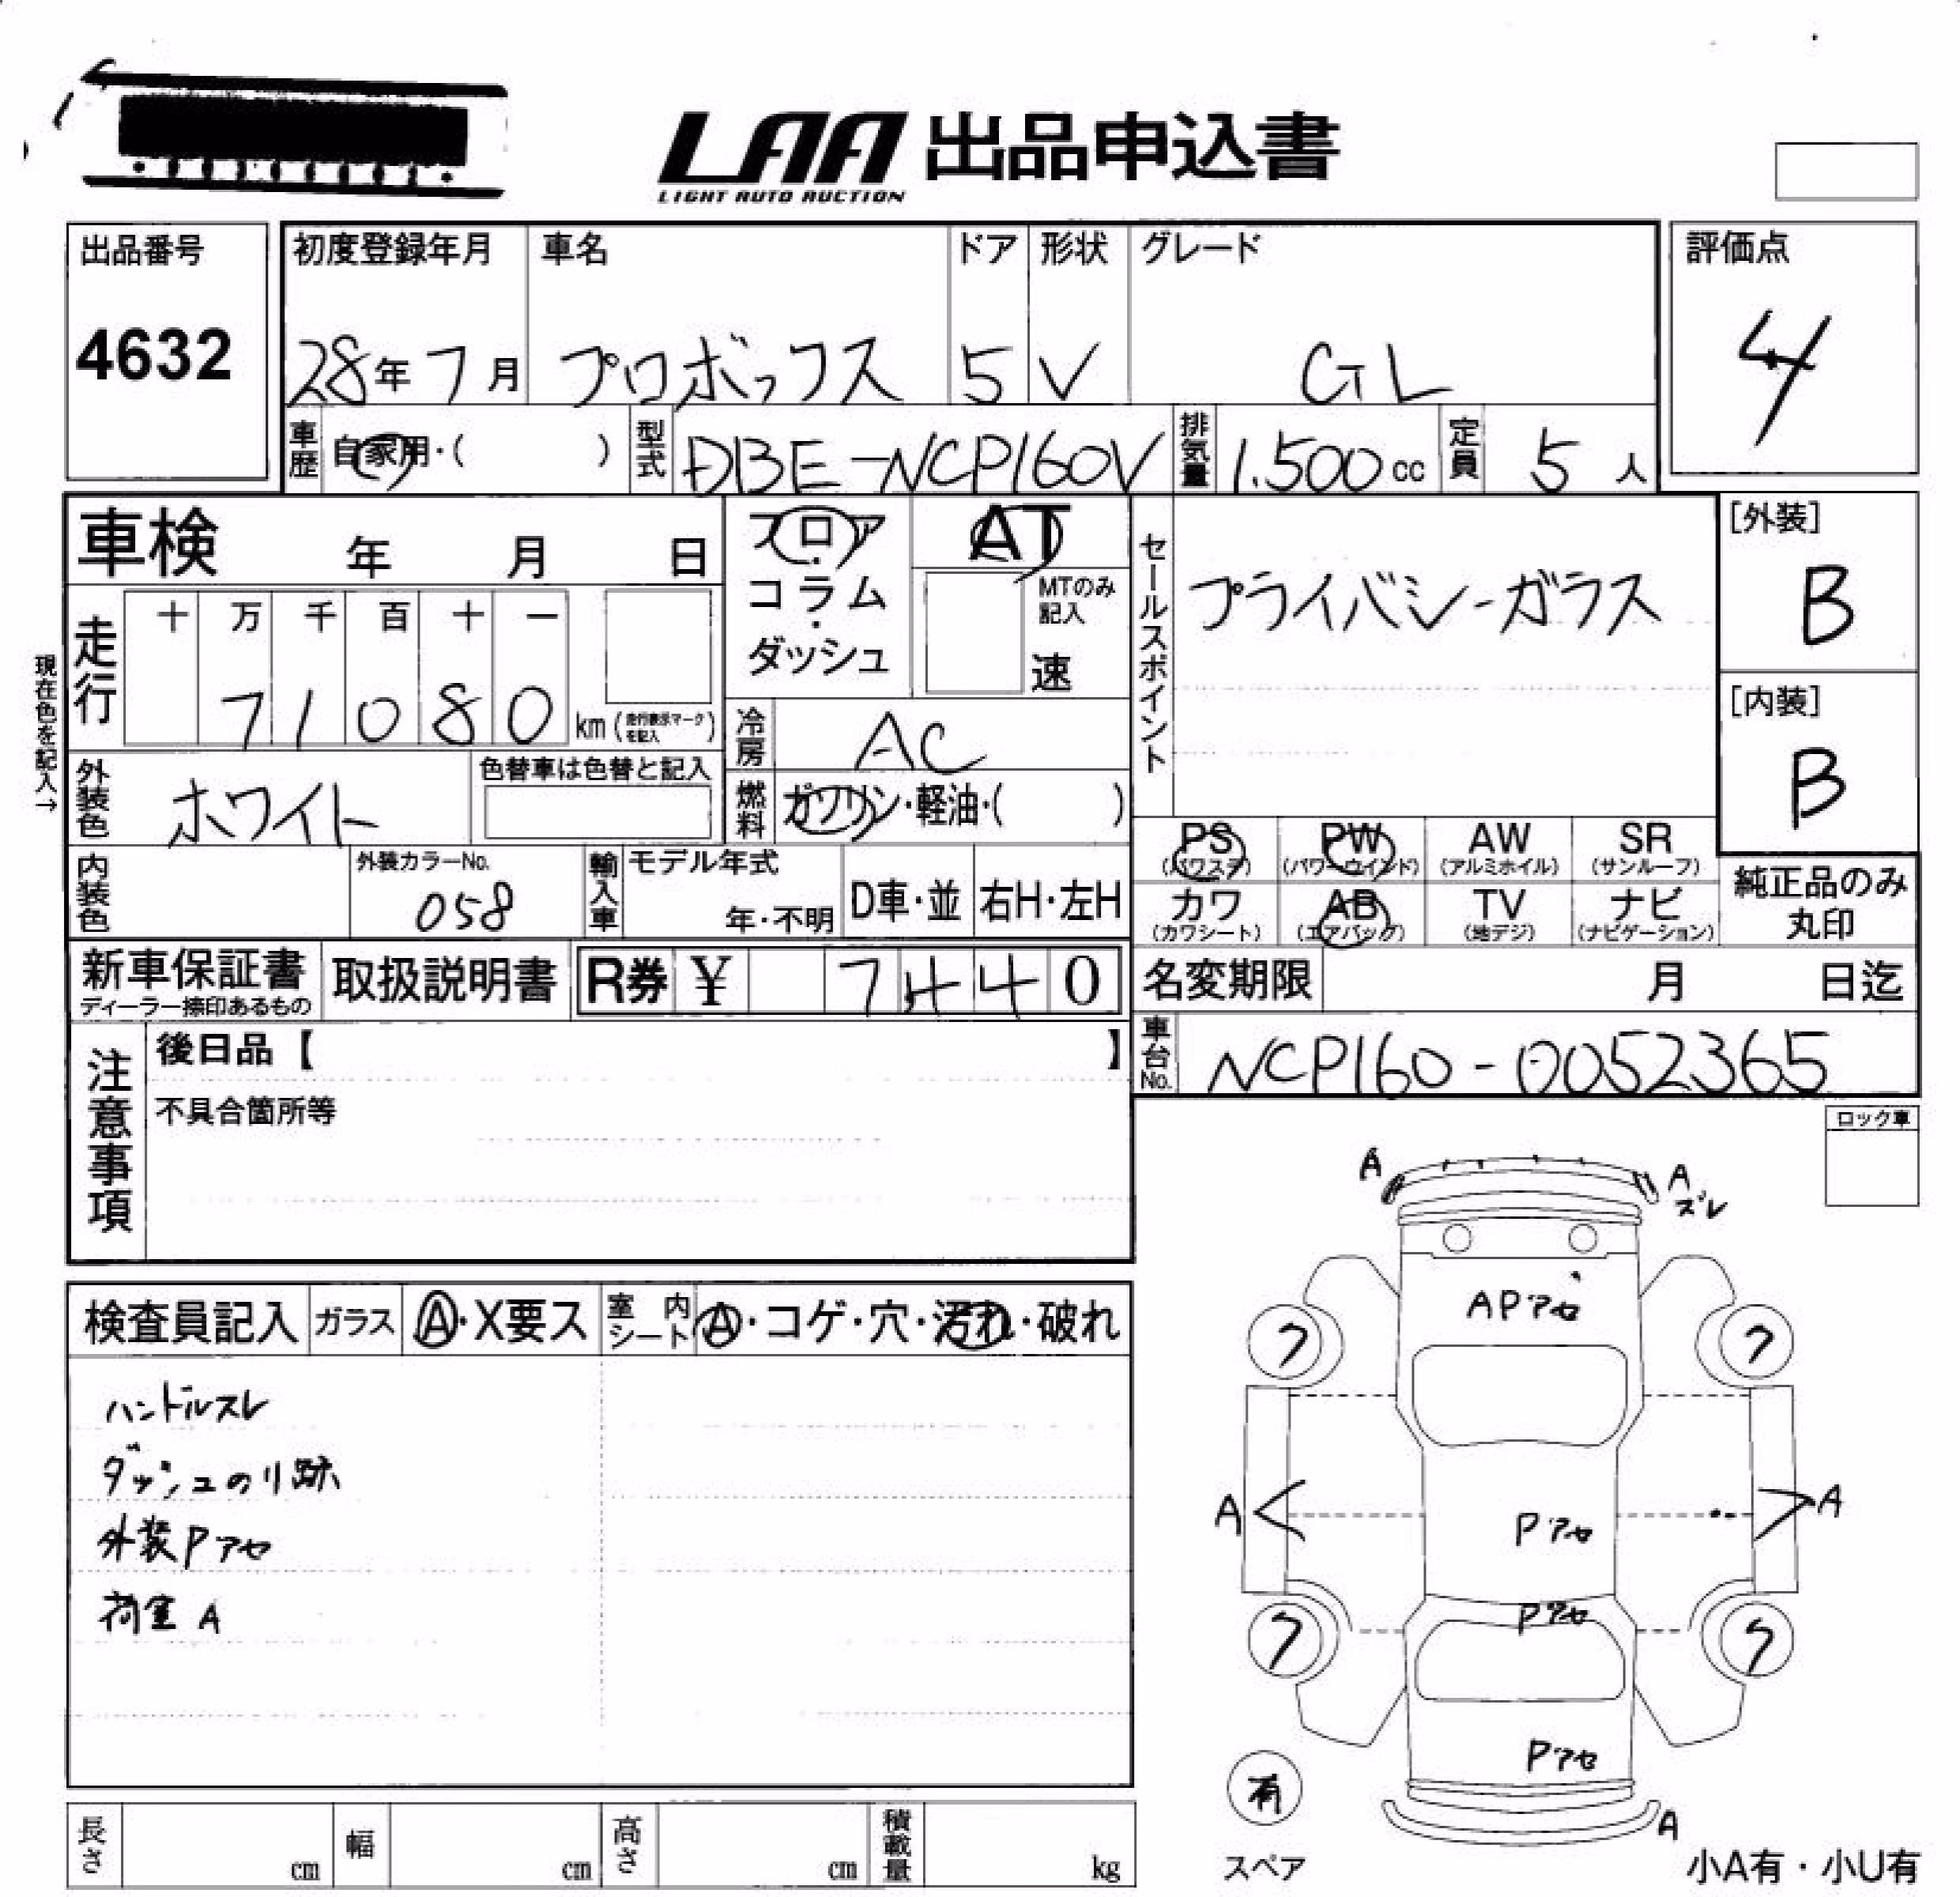 LAA 出品申込書
LIGHT AUTO AUCTION
出品番号
4632
初度登録年月
28年7月
車名
プロボックス
ドア
5
形状
V
グレード
GL
評価点
4
車歴
自家用・( )
型式
DBE-NCP160V
排気量
1.500cc
定員
5人
車検 年 月 日
フロア・コラム・ダッシュ
AT
MTのみ記入
速
セールスポイント
プライバシーガラス
[外装]
B
[内装]
B
現在色を記入→
走行
十 万 千 百 十 一
7 1 0 8 0 km (走行表示マークを記入)
冷房
AC
燃料
ガソリン・軽油・( )
外装色
ホワイト
色替車は色替と記入
内装色
外装カラーNo.
058
輸入車
モデル年式
年・不明
D車・並
右H・左H
PS (パワステ)
PW (パワーウインド)
AW (アルミホイル)
SR (サンルーフ)
カワ (カワシート)
AB (エアバッグ)
TV (地デジ)
ナビ (ナビゲーション)
純正品のみ丸印
新車保証書
ディーラー捺印あるもの
取扱説明書
R券 ¥ 7440
名変期限 月 日迄
車台No.
NCP160-0052365
注意事項
後日品【 】
不具合箇所等
ロック車
検査員記入
ガラス
A・X要ス
室内シート
A・コゲ・穴・汚れ・破れ
ハンドルスレ
ダッシュのリ跡
外装Pアセ
荷室A
A
A
ズレ
APアセ
フ
フ
A
A
Pアセ
Pアセ
フ
フ
Pアセ
A
有
スペア
小A有・小U有
長さ cm
幅 cm
高さ cm
積載量 kg